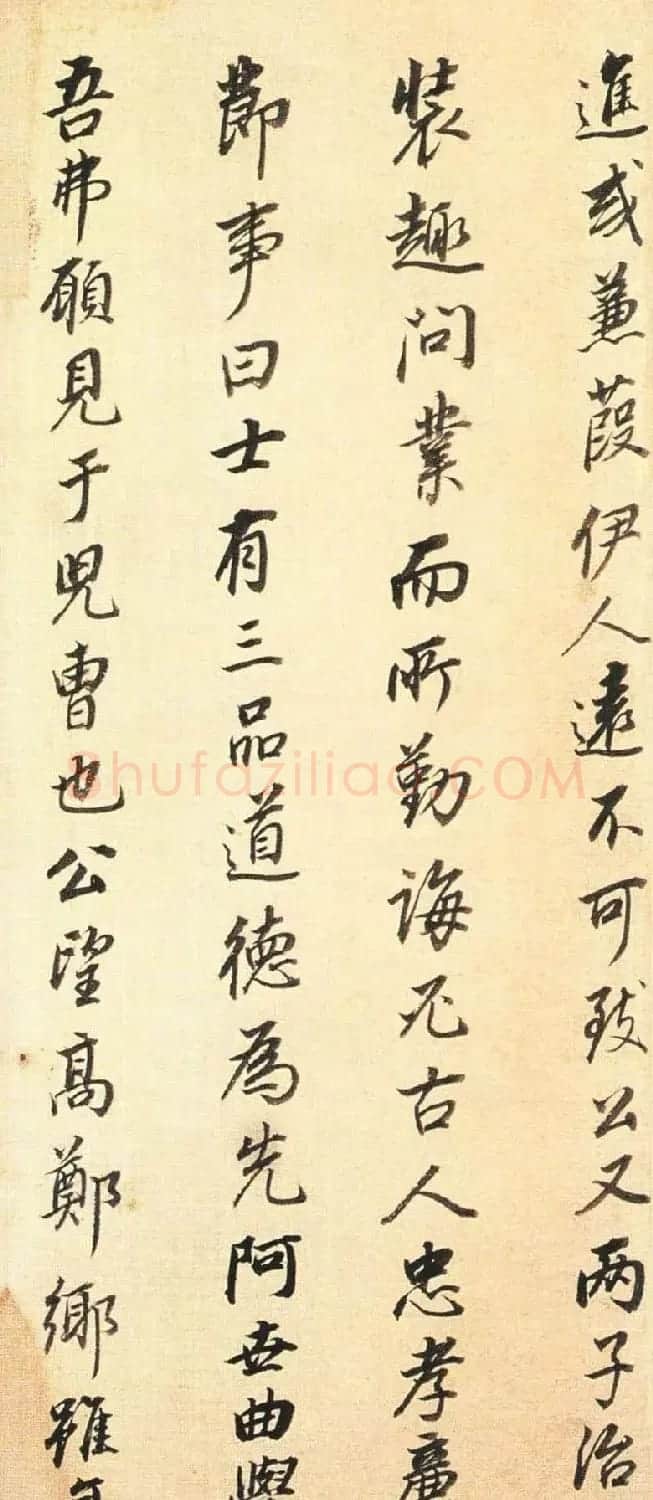 進或蒹葭伊人遠不可致公又兩子治
裝趣問業而所勤誨凡古人忠孝廉
節事曰士有三品道德為先阿世曲學
吾弗願見于兒曹也公望高鄭鄉雖年
Shufaziliao.COM